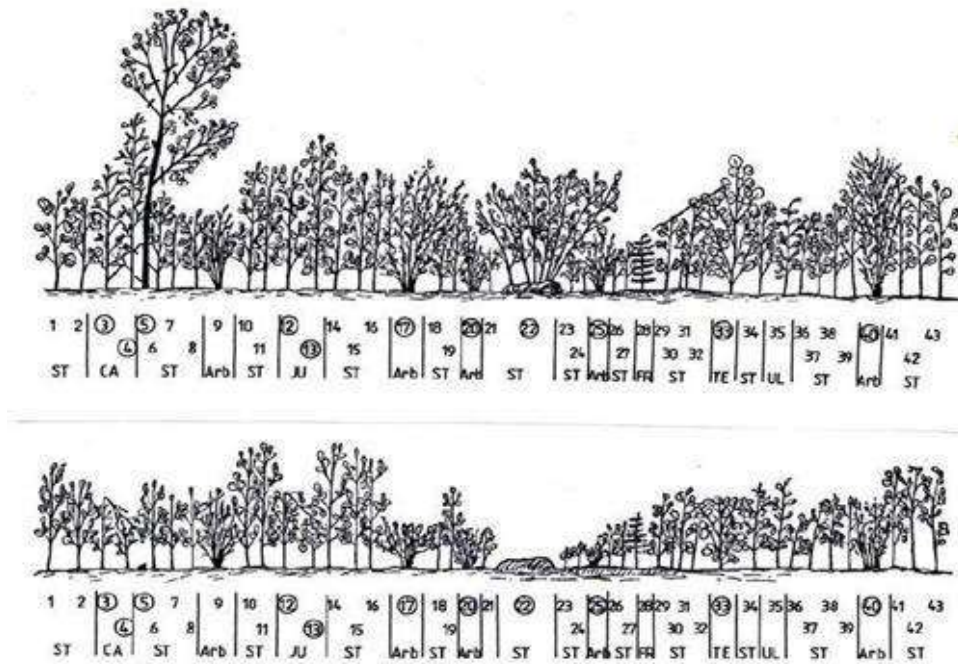 1 2 ③ ⑤ 7 9 10 ⑫ 14 16 ⑰ 18 ⑳ 21 ㉒ 23 ㉕ 26 28 29 31 ㉝ 34 35 36 38 ㊵ 41 43
④ 6 8 11 ⑬ 15 19 24 27 30 32 37 39 42
ST CA ST Arb ST JU ST Arb ST Arb ST ST Arb ST FR ST TE ST UL ST Arb ST
1 2 ③ ⑤ 7 9 10 ⑫ 14 16 ⑰ 18 ⑳ 21 ㉒ 23 ㉕ 26 28 29 31 ㉝ 34 35 36 38 ㊵ 41 43
④ 6 8 11 ⑬ 15 19 24 27 30 32 37 39 42
ST CA ST Arb ST JU ST Arb ST Arb ST ST Arb ST FR ST TE ST UL ST Arb ST